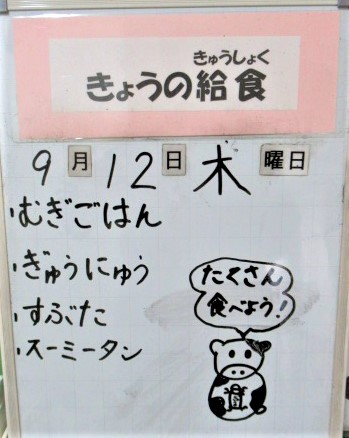 きゅうしょく
きょうの給食
9月12日木曜日
・むぎごはん
・ぎゅうにゅう
・すぶた
・スーミータン
たくさん
食べよう!